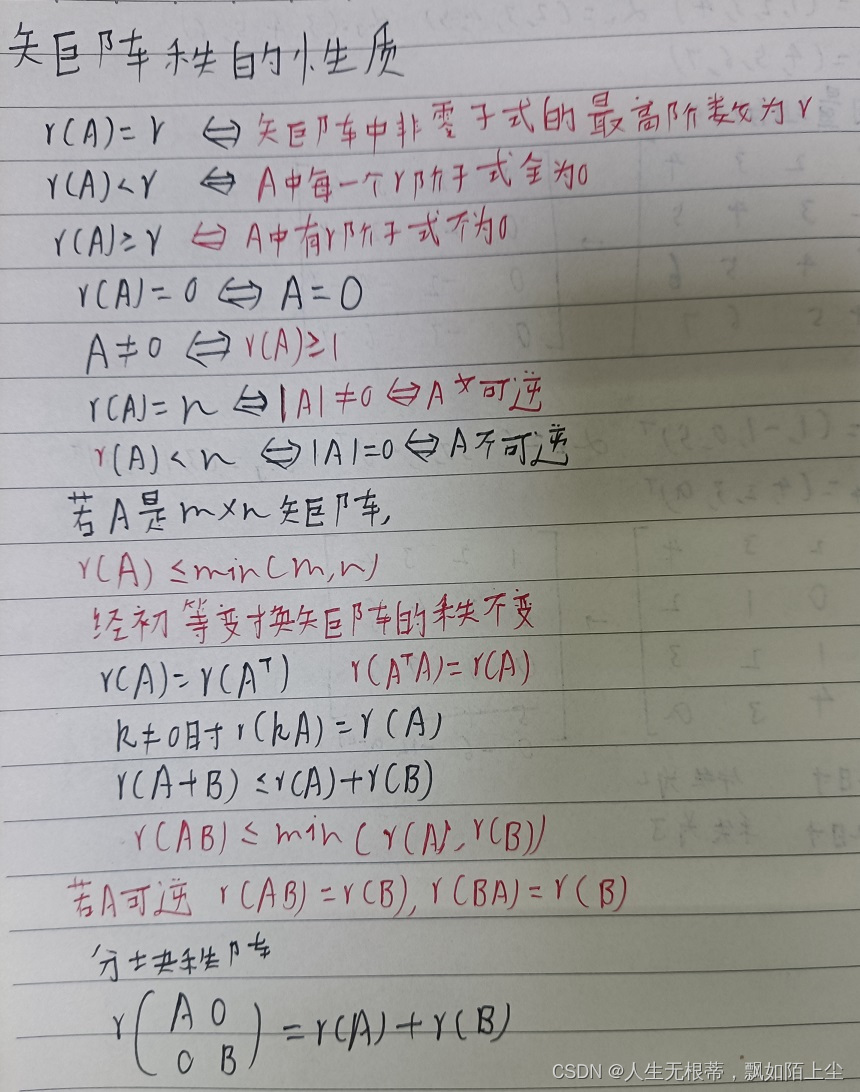 矩阵秩的性质
r(A)=r ⇔ 矩阵中非零子式的最高阶数为r
r(A)<r ⇔ A中每一个r阶子式全为0
r(A)≥r ⇔ A中有r阶子式不为0
r(A)=0 ⇔ A=0
A≠0 ⇔ r(A)≥1
r(A)=n ⇔ |A|≠0 ⇔ A 可逆
r(A)<n ⇔ |A|=0 ⇔ A不可逆
若A是m×n矩阵,
r(A)≤min(m,n)
经初等变换矩阵的秩不变
r(A)=r(Aᵀ) r(AᵀA)=r(A)
k≠0时r(kA)=r(A)
r(A+B)≤r(A)+r(B)
r(AB)≤min(r(A),r(B))
若A可逆 r(AB)=r(B),r(BA)=r(B)
分块矩阵
r(A 0
0 B)=r(A)+r(B)
CSDN @人生无根蒂,飘如陌上尘